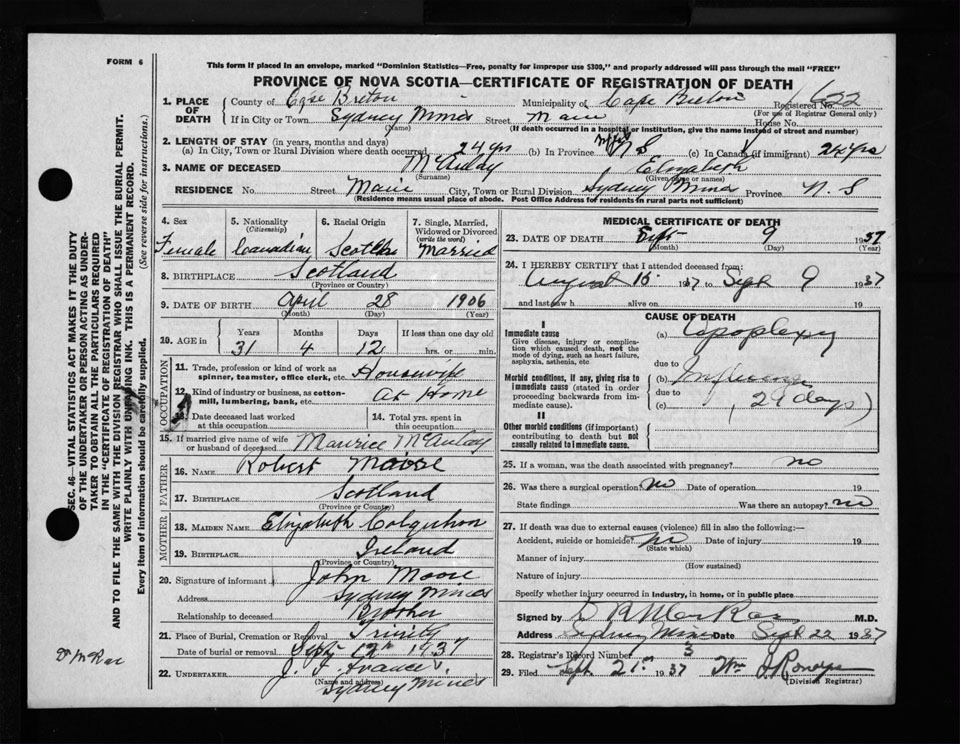 FORM 6
This form if placed in an envelope, marked "Dominion Statistics—Free, penalty for improper use $300," and properly addressed will pass through the mail "FREE"
PROVINCE OF NOVA SCOTIA—CERTIFICATE OF REGISTRATION OF DEATH
1. PLACE OF DEATH County of Cape Breton Municipality of Cape Breton Registered No. 622
(For use of Registrar General only)
If in City or Town Sydney Mines Street Main House No.
(Name) (If death occurred in a hospital or institution, give the name instead of street and number)
2. LENGTH OF STAY (in years, months and days)
(a) In City, Town or Rural Division where death occurred 24 yrs (b) In Province N S (c) In Canada (if immigrant) 24 yrs
3. NAME OF DECEASED McAulay Elizabeth
(Surname) (Given name or names)
RESIDENCE No. Street Main City, Town or Rural Division Sydney Mines Province N. S
(Residence means usual place of abode. Post Office Address for residents in rural parts not sufficient)
4. Sex Female
5. Nationality (Citizenship) Canadian
6. Racial Origin Scotch
7. Single, Married, Widowed or Divorced (write the word) Married
8. BIRTHPLACE Scotland
(Province or Country)
9. DATE OF BIRTH April 28 1906
(Month) (Day) (Year)
10. AGE in Years 31 Months 4 Days 12 If less than one day old hrs. or min.
OCCUPATION
11. Trade, profession or kind of work as spinner, teamster, office clerk, etc. Housewife
12. Kind of industry or business, as cotton-mill, lumbering, bank, etc. at Home
13. Date deceased last worked at this occupation
14. Total yrs. spent in this occupation
15. If married give name of wife or husband of deceased Maurice McAulay
FATHER
16. NAME Robert Moore
17. BIRTHPLACE Scotland
(Province or Country)
MOTHER
18. MAIDEN NAME Elizabeth Colquhon
19. BIRTHPLACE Ireland
(Province or Country)
20. Signature of informant John Moore
Address Sydney Mines
Relationship to deceased Brother
21. Place of Burial, Cremation or Removal Trinity
Date of burial or removal Sept 12th 1937
22. UNDERTAKER J. F.
(Name and address) Sydney Mines
MEDICAL CERTIFICATE OF DEATH
23. DATE OF DEATH Sept 9 1937
(Month) (Day) (Year)
24. I HEREBY CERTIFY that I attended deceased from:
August 15 1937 to Sept 9 1937
and last saw h alive on 19
CAUSE OF DEATH
I
Immediate cause
Give disease, injury or complication which caused death, not the mode of dying, such as heart failure, asphyxia, asthenia, etc
(a) Apoplexy
due to
Morbid conditions, if any, giving rise to immediate cause (stated in order proceeding backwards from immediate cause).
(b) Influenza
due to
(c) (29 days)
II
Other morbid conditions (if important) contributing to death but not causally related to immediate cause.
25. If a woman, was the death associated with pregnancy? no
26. Was there a surgical operation? no Date of operation 19
State findings Was there an autopsy? no
27. If death was due to external causes (violence) fill in also the following:—
Accident, suicide or homicide? no Date of injury 19
(State which)
Manner of injury
(How sustained)
Nature of injury
Specify whether injury occurred in industry, in home, or in public place
Signed by M.D.
Address Sydney Mines Date Sept 22 1937
28. Registrar's Record Number 3
29. Filed Sept. 27th 1937 Wm
(Division Registrar)
SEC. 46—VITAL STATISTICS ACT MAKES IT THE DUTY
OF THE UNDERTAKER OR PERSON ACTING AS UNDER-
TAKER TO OBTAIN ALL THE PARTICULARS REQUIRED
IN THE "CERTIFICATE OF REGISTRATION OF DEATH"
AND TO FILE THE SAME WITH THE DIVISION REGISTRAR WHO SHALL ISSUE THE BURIAL PERMIT.
WRITE PLAINLY WITH UNFADING INK. THIS IS A PERMANENT RECORD.
Every item of information should be carefully supplied. (See reverse side for instructions.)
Dr McRae